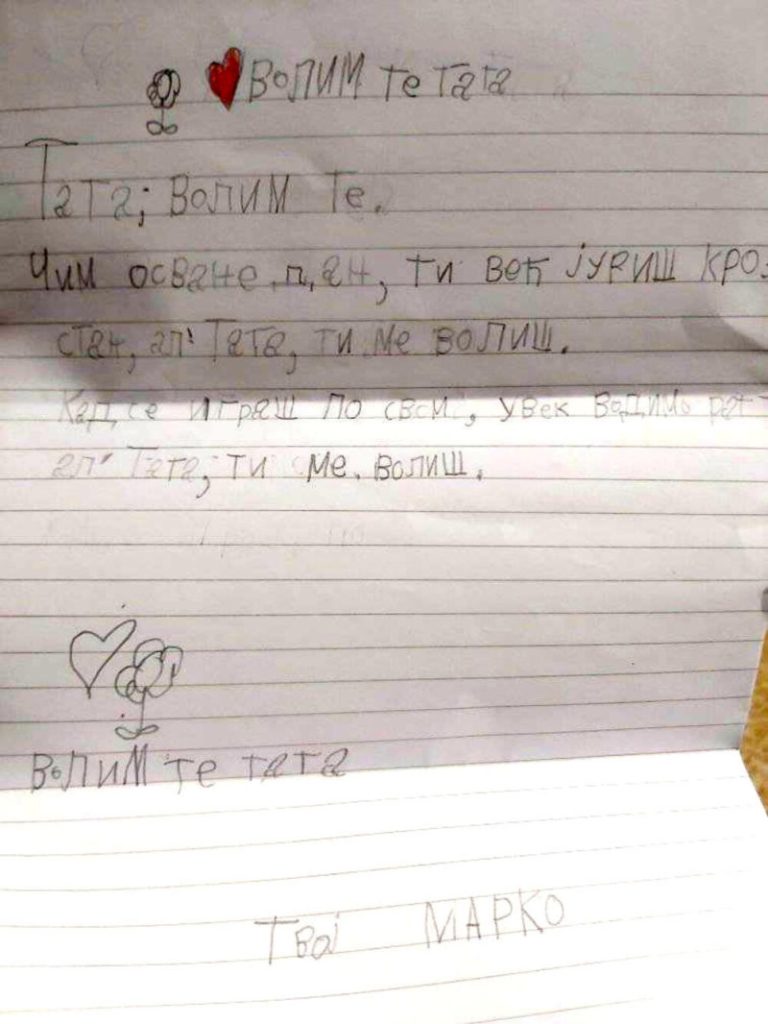 ВОЛИМ те тата
Тата; ВОЛИМ Те.
Чим осване дан, ти већ јуриш кро
стан, ал' Тата, ти ме волиш.
Кад се играш по свом, увек водимо рат
ал' Тата, ти ме волиш.
ВОЛИМ те тата
Твој МАРКО